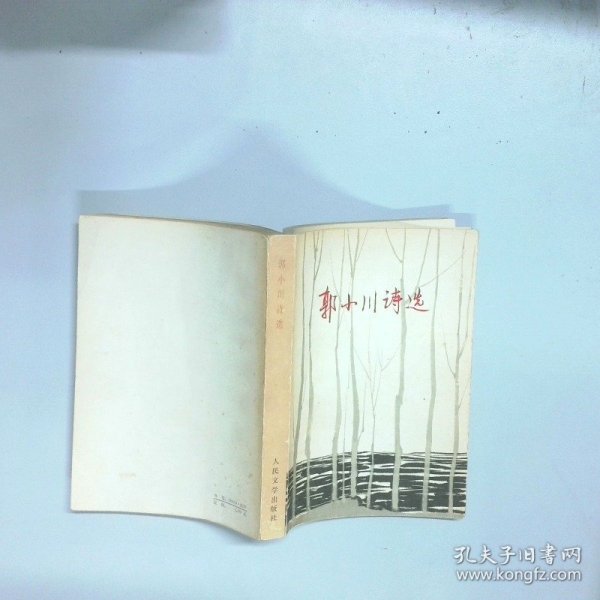 郭小川诗选
郭小川诗选
人民文学出版社
孔夫子旧书网
www.kongfz.com